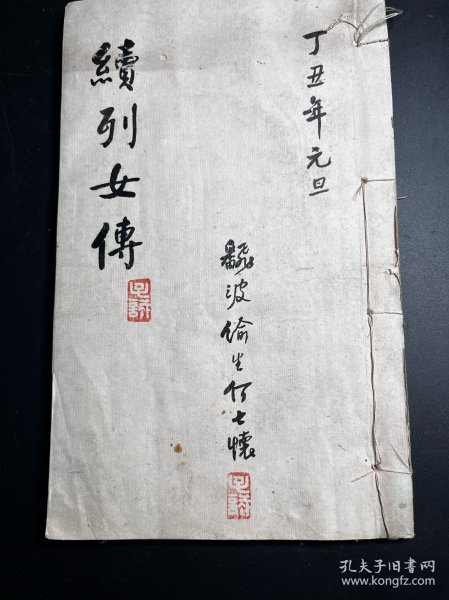 丁丑年元旦
飜波偷生何七懷
續列女傳
孔夫子旧书网
www.kongfz.com